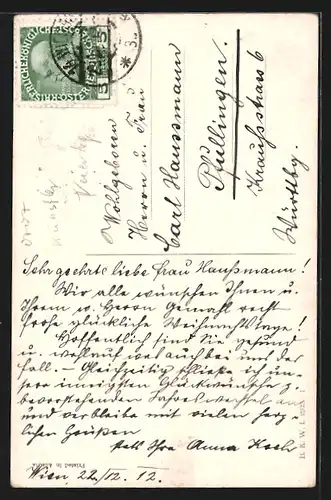 Wohlgeboren
Herrn u. Frau
Carl Haussmann
Pfullingen.
Kraußstrass 6
Württbg.
Sehr geehrte liebe Frau Haußmann!
Wir alle wünschen Ihnen u.
Ihrem w. Herrn Gemahl recht
frohe glückliche Weihnachtstage!
Hoffentlich sind Sie gesund
u. wohlauf was auch bei uns der
Fall. – Gleichzeitig schließe ich un-
sere innigsten Glückwünsche z.
bevorstehenden Jahreswechsel an
und verbleibe mit vielen herz-
lichen Grüßen
stets Ihre Anna Koch
Wien, 22/12. 12.
Printed in
B. K. W. I.